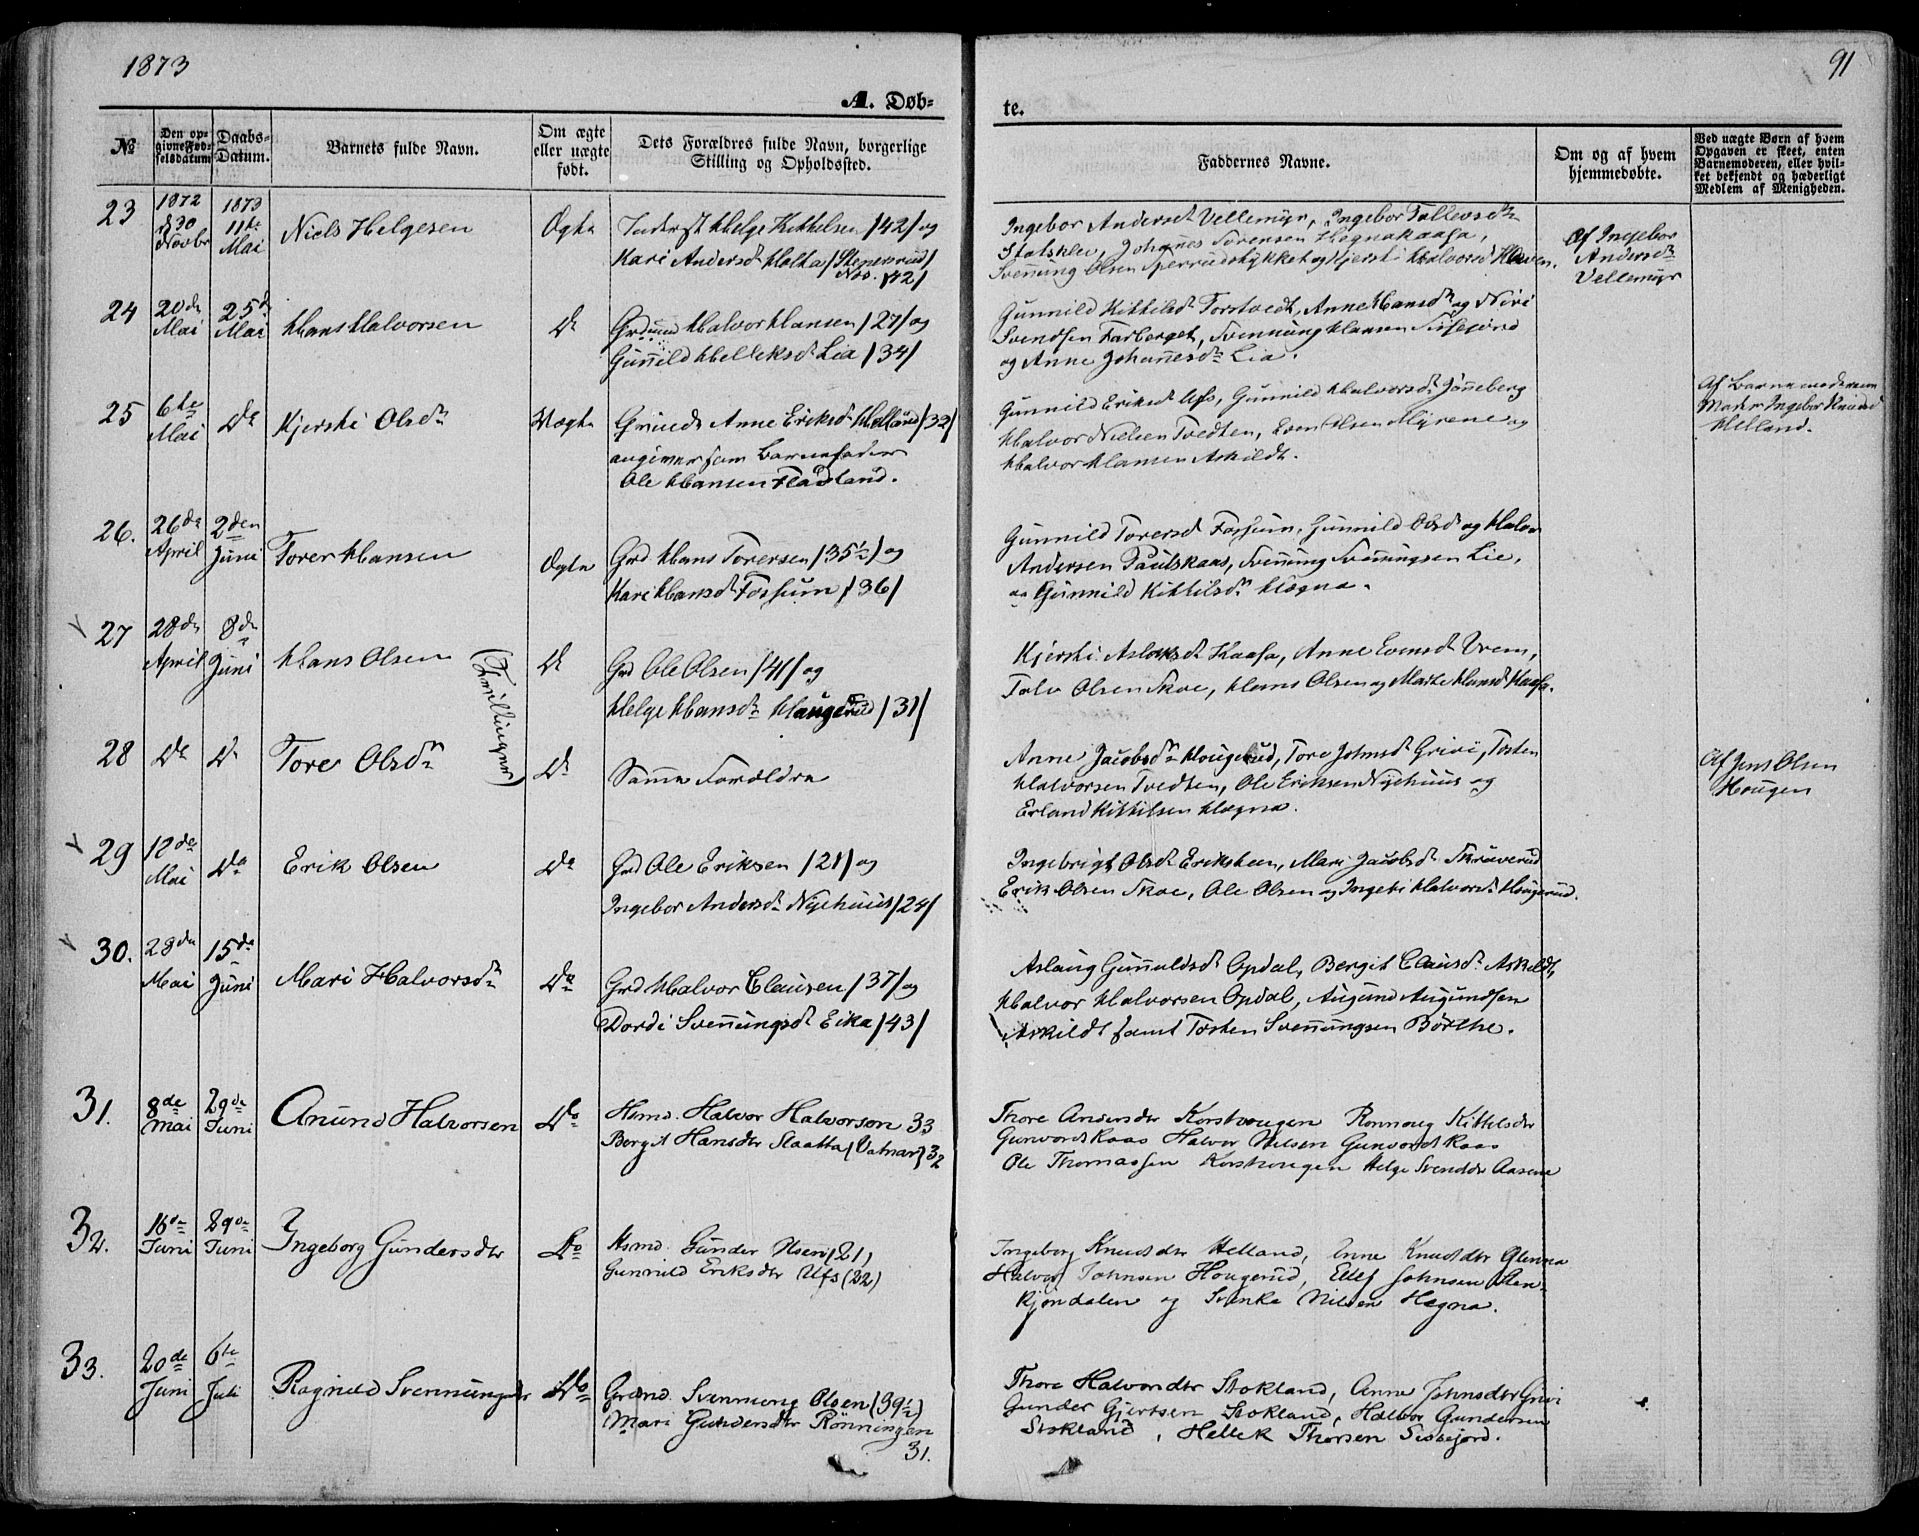 1873
91
A. Døb-
te.
№
Den op-
givne Fød-
selsdatum
Daabs-
Datum.
Barnets fulde Navn.
Om ægte
eller uægte
født.
Dets Forældres fulde Navn, borgerlige
Stilling og Opholdssted.
Faddernes Navne.
Om og af hvem
hjemmedøbte.
Ved uægte Børn af hvem
Opgaven er skeet, enten
Barnemoderen, eller hvil-
ket bekjendt og hæderligt
Medlem af Menigheden.
23
1872
30
Novbr
1873
11te
Mai
Niels Helgesen
Ægte
Helge Kittilsen /42/ og
Kari Andersdt Holta /Stenerud/
Nov. /42/
Ingebor Andersdt Vellemyr, Ingebor Tollevsdtr
Statsklev, Johannes Sørensen Hegnakaasa,
Svennung Olsen og Kjersti Halvorsd Haven.
Af Ingebor
Andersdtr
Vellemyr
24
20de
Mai
25de
Mai
Hans Halvorsen
Do
Grdmd Halvor Hansen /27/ og
Gunnild Helleksdt Lia /34/
Gunnild Kittilsdt Forstvedt, Anne Hansdtr og Niri
Svendsen Farberget, Svennung Hansen
og Anne Johannesdtr Lia.
25
6te
Mai
Do
Kjersti Olsdtr
Uægte
Anne Eriksdt Helland /32/
angiver som Barnefader
Ole Hansen Fladland.
Gunnild Eriksdt Ufs, Gunnild Halvorsdt Jønneberg
Halvor Nielsen Tvedten, Even Olsen Myrene og
Halvor Hansen Askildt.
Af Barnemoderens
Moder Ingebor Knudsd
Helland.
26.
26de
April
2den
Juni
Torer Hansen
Ægte
Grd Hans Torersen /35½/ og
Kari Hansdt Forsum /36/
Gunnild Torersd Forsum, Gunnild Olsd og Halvor
Andersen Paulskaas, Svennung Svennungsen Lie,
og Gunnild Kittilsdtr Høgna.
27
28de
April
8de
Juni
Hans Olsen
(Tvillinger)
Do
Grd Ole Olsen /41/ og
Helge Hansdtr Haugerud /31/
Kjersti Aslaksdt Kaasa, Anne Evensdt Vrem,
Talv Olsen Skoe, Hans Olsen og Marte Hansdt Kaasa.
28
Do
Do
Tore Olsdtr
Do
Samme Forældre
Anne Jacobsdtr Hougerud, Tore Johnsdt Grivi, Tosten
Halvorsen Tvedten, Ole Eriksen Nyehuus og
Erland Kittilsen Høgna.
Af Jens Olsen
Hougen
29
12de
Mai
Do
Erik Olsen
Do
Grd Ole Eriksen /21/ og
Ingebor Andersdt Nyehuus /24/
Ingebrigt Olsdt Eriksteen, Mari Jacobsdt Skraverud
Erik Olsen Skoe, Ole Olsen og Ingebr Halvorsdt Hougerud.
30.
28de
Mai
15de
Juni
Mari Halvorsdtr
Do
Grd Halvor Clausen /37/ og
Dordi Svennungsdt Eika /43/
Aslaug Gunnuldsdt Opdal, Bergit Clausdt Askildt,
Halvor Halvorsen Opdal, Augund Augundsen
Askildt samt Tosten Svennungsen Börthe.
31.
8de
Mai
29de
Juni
Anund Halvorsen
Do
Hsmd. Halvor Halvorson 33
Bergit Hansdtr Slaatta (Vatnar) 32
Thore Andersdtr Korsthougen Rønnoug Kittelsdtr
Gunvordskaas Halvor Nilsen Gunvordskaas
Ole Thomassen Korsthougen Helge Svendsdtr Aasene
32.
16de
Juni
29de
Juni
Ingeborg Gundersdtr
Do
Hsmd. Gunder Olsen (21)
Gunnild Eriksdtr Ufs (22)
Ingeborg Knudsdtr Helland, Anne Knudsdtr Glenna
Halvor Johnsen Hougerud, Ellef Johnsen Sten-
kjøndalen og Svenke Nilsen Hægna.
33.
20de
Juni
6te
Juli
Ragnild Svennungsdtr
Do
Grdmd. Svennung Olsen (39½)
Mari Gundersdtr Rönningen
31.
Thore Halvorsdtr Stokland, Anne Johnsdtr Grivi
Gunder Gjertsen Stokland, Halvor Gundersen
Stokland, Hellek Thorsen Sissejord.